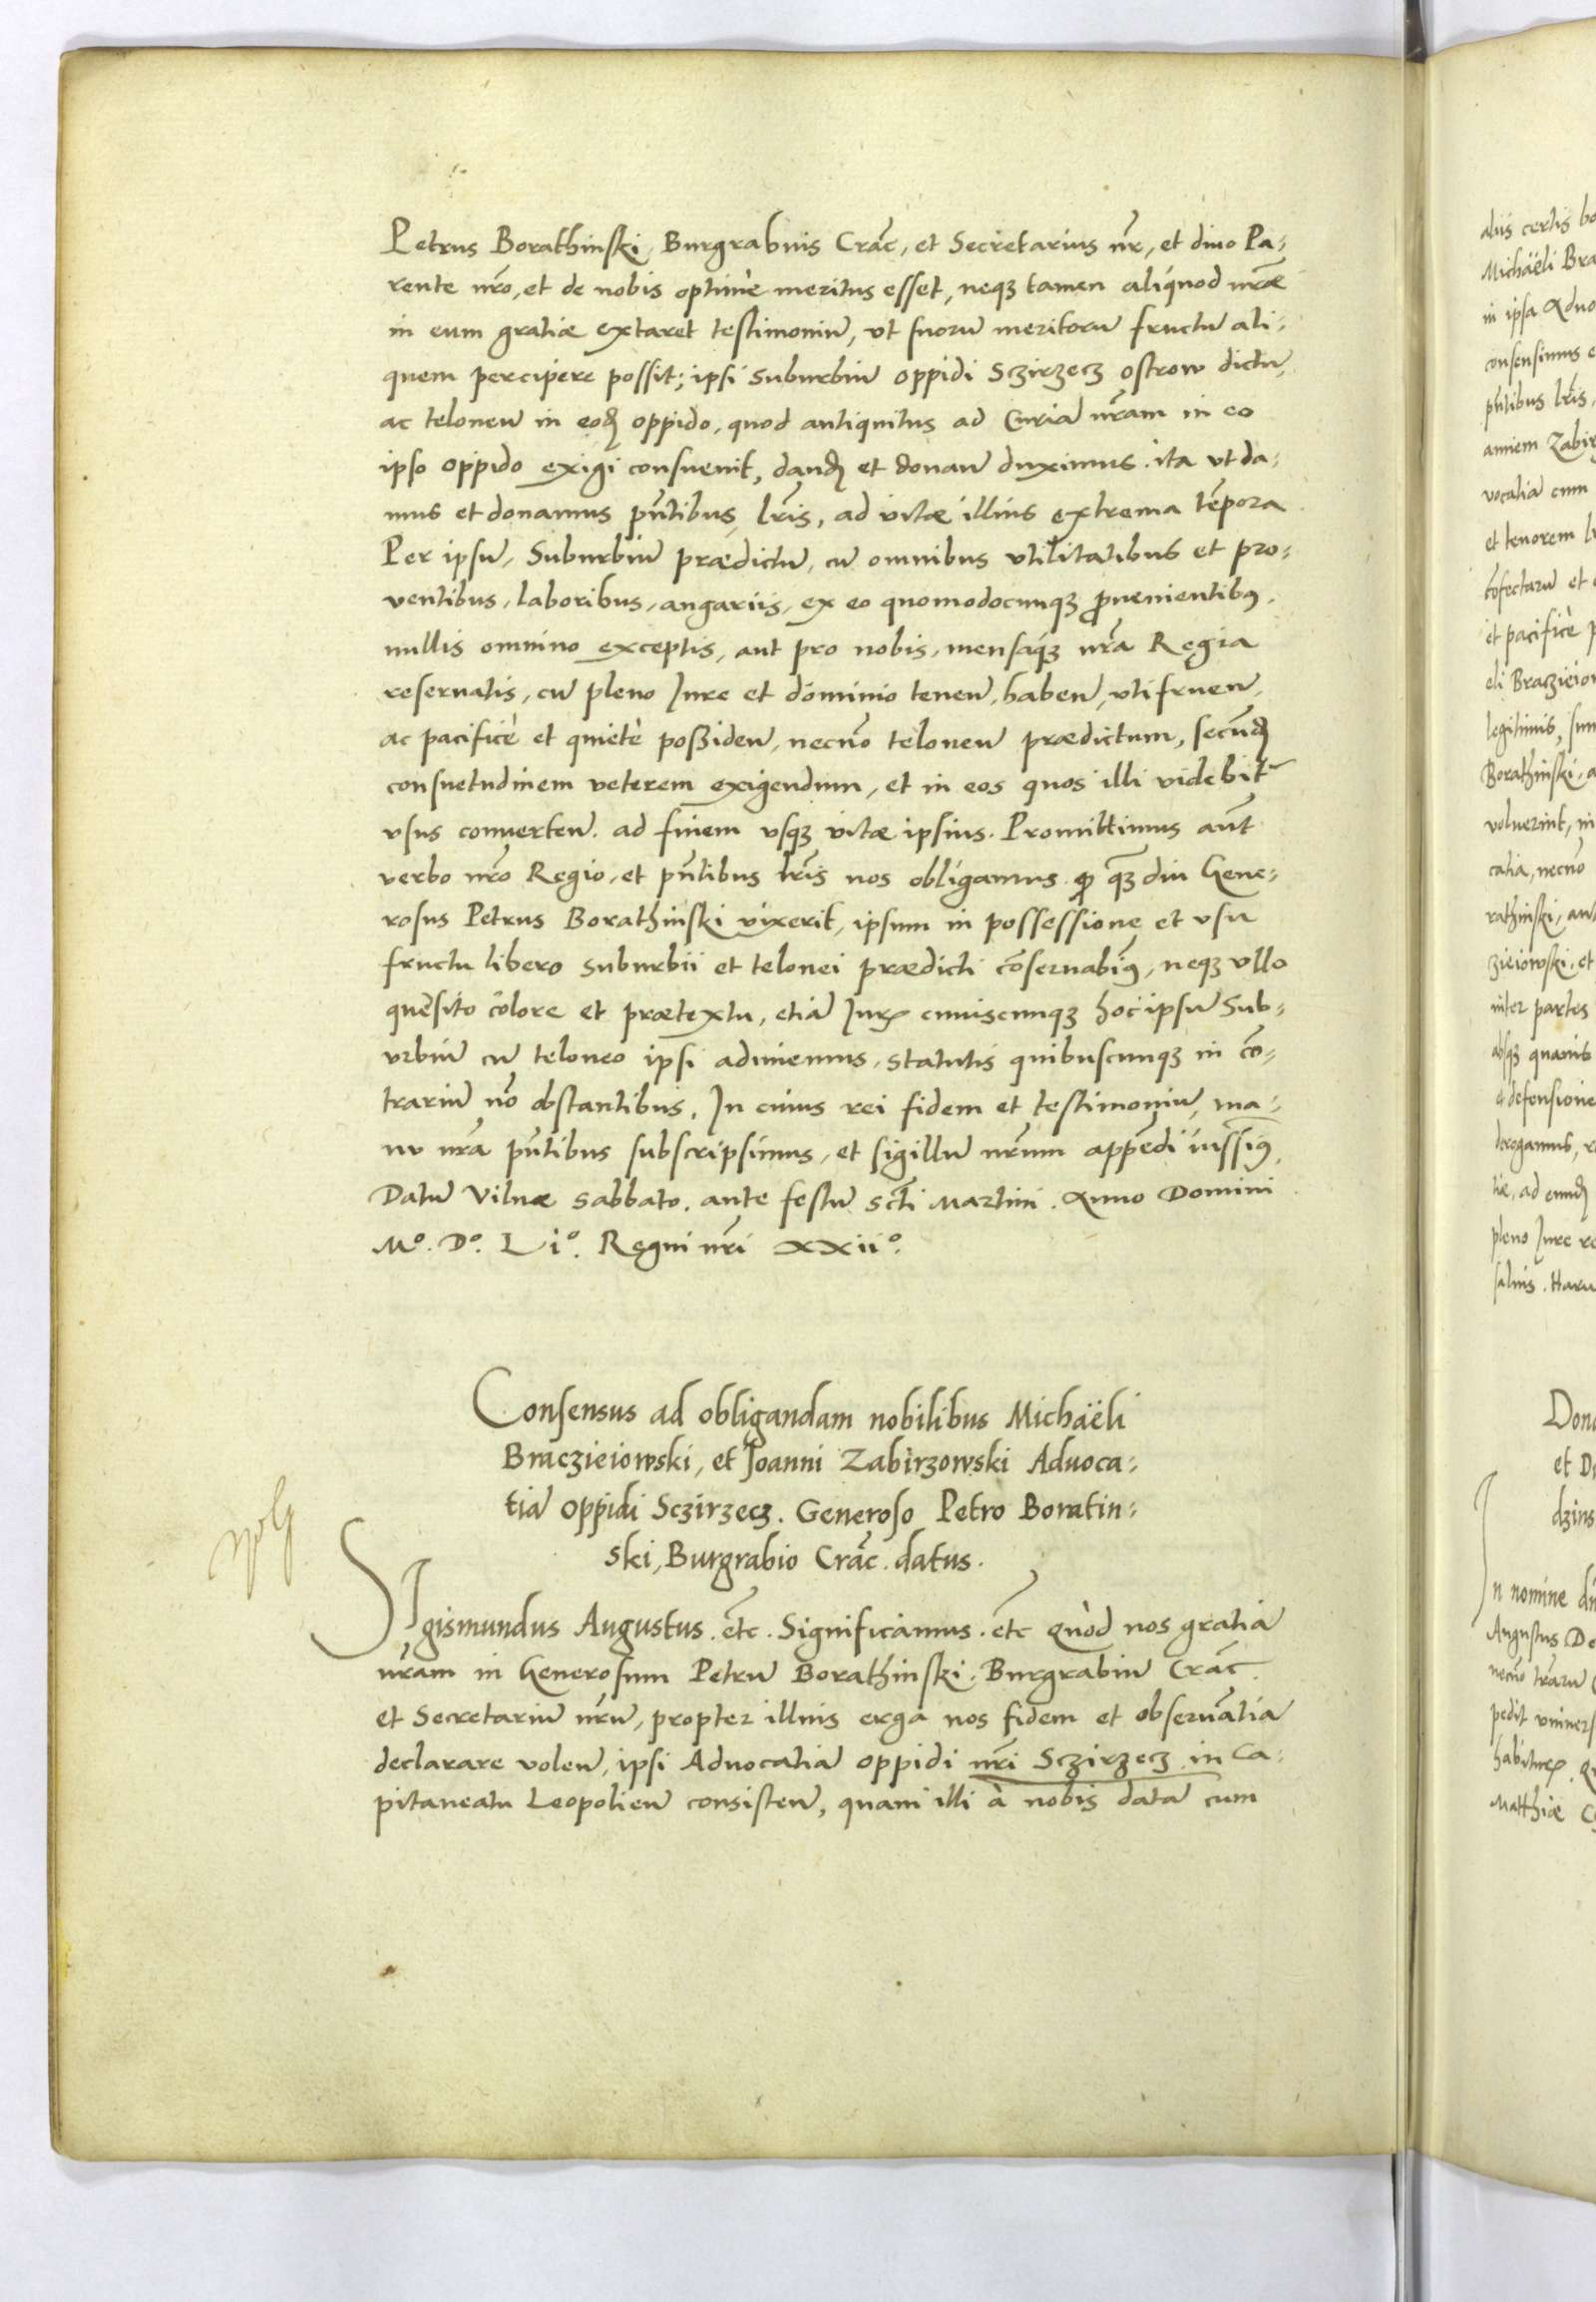 Petrus Borathinski, Burgrabius Crac̃, et Secretarius nr̃, et diuo Pa:
rente nr̃o, et de nobis optimè meritus esset, neqꝫ tamen aliquod nr̃æ
in eum gratiæ extaret testimoniū, vt suorū meritorū fructū ali:
quem percipere possit; ipsi Suburbiū oppidi Sczirzecz Ostrow dictū,
ac teloneū in eod̃ oppido, quod antiquitus ad Curiā nr̃am in eo
ipso oppido exigi consueuit, dand̃ et donan̄ duximus. ita vt da:
mus et donamus pñtibus lr̃is, ad vitæ illius extrema tẽpora
Per ipsū, Suburbiū prædictū, cū omnibus vtilitatibus et pro:
ventibus, laboribus, angariis, ex eo quomodocunqꝫ ꝓuenientibꝰ,
nullis omnino exceptis, aut pro nobis, mensaqꝫ nr̃a Regia
reseruatis, cū pleno Jure et dominio tenen̄, haben̄, vtifruen̄,
ac pacificè et quietè possiden̄, necnõ teloneū prædictum, secũd̃
consuetudinem veterem exigendum, et in eos quos illi videbit̃
vsus conuerten̄. ad finem vsqꝫ vitæ ipsius. Promittimus aũt
verbo nr̃o Regio, et pñtibus lr̃is nos obligamus. ꝙ qꝫ diu Gene:
rosus Petrus Borathinski vixerit, ipsum in possessione et vsu
fructu libero suburbii et telonei prædicti cõseruabimꝰ, neqꝫ vllo
quesito colore et prætextu, etiā Jurꝭ cuiuscunqꝫ hoc ipsū Sub:
vrbiū cū teloneo ipsi adimemus, statutis quibuscunqꝫ in cõ:
trariū nõ obstantibus. In cuius rei fidem et testimoniū, ma:
nu nr̃a pñtibus subscripsimus, et sigillū nr̃um appẽdi iussimꝰ,
Datū Vilnæ Sabbato. ante festū Scti Martini. Anno Domini
Mº. Dº. Liº. Regni nr̃i XXiiº.
Consensus ad obligandam nobilibus Michaëli
Braczieiowski, et Joanni Zabirzowski Aduoca:
tiā oppidi Sczirzecz. Generoso Petro Boratin:
ski, Burgrabio Crac̃. datus.
SIgismundus Augustus. etc̃. Significamus. etc̃ Quòd nos gratiā
nr̃am in Generosum Petrū Borathinski, Burgrabiū Crac̃
et Secretariū nr̃ū, propter illius erga nos fidem et obseruãtiā
declarare volen̄, ipsi Aduocatiā oppidi nr̃i Sczirzecz in Ca:
pitaneatu Leopolien̄ consisten̄, quam illi à nobis datā cum
aliis certis
Michaëli
in ipsa
consensimus
pñtibus lr̃is
vocatiā cum
et tenorem
et pacificè
legitimis,
Borathinski,
voluerint,
catiā, necnõ
rathinski,
zieiowski, et
inter partes
absqꝫ quauis
defensione
derogamus,
pleno Jure
saluis. Haru
et
n nomine
Augustus
Matthiæ